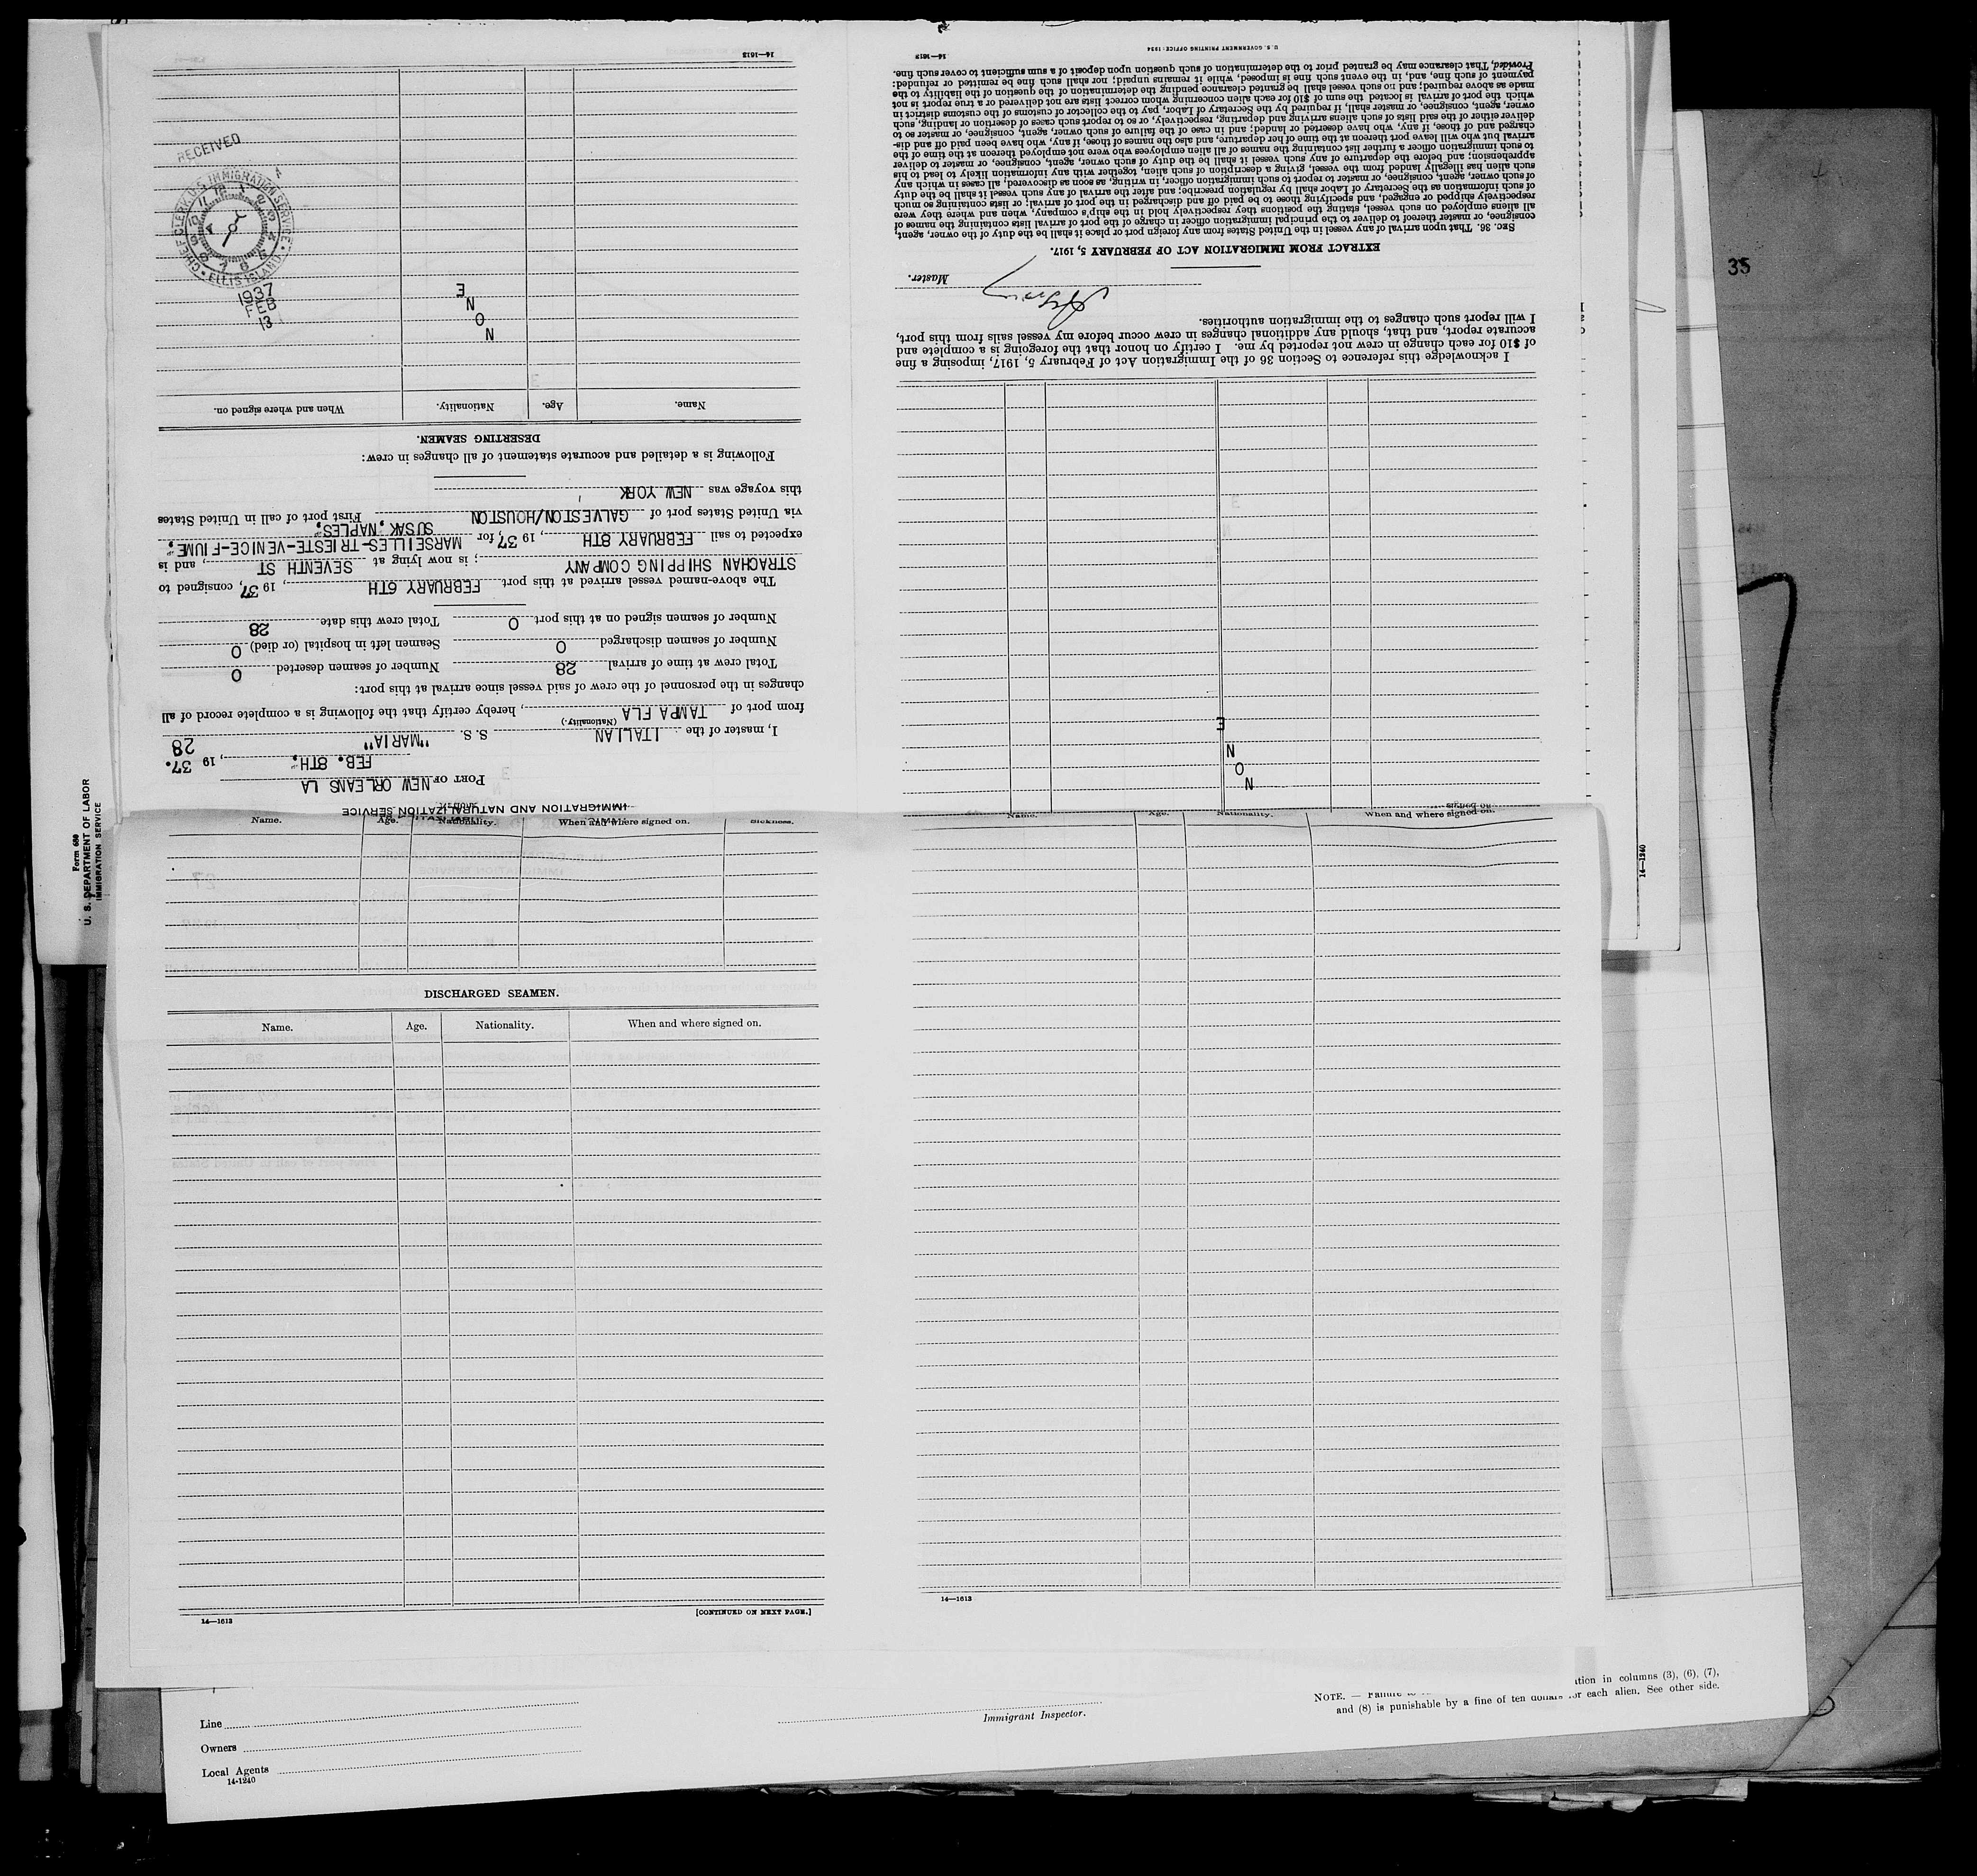 IMMIGRATION AND NATURALIZATION SERVICE
PORT OF NEW ORLEANS LA
FEB. 8TH. , 19 37.
I, master of the ITALIAN S. S. "MARIA" 28
(Nationality.)
from port of TAMPA FLA , hereby certify that the following is a complete record of all
changes in the personnel of the crew of said vessel since arrival at this port:
Total crew at time of arrival 28 Number of seamen deserted 0
Number of seamen discharged 0 Seamen left in hospital (or died) 0
Number of seamen signed on at this port 0 Total crew this date 28
The above-named vessel arrived at this port FEBRUARY 6TH , 19 37, consigned to
STRACHAN SHIPPING COMPANY ; is now lying at SEVENTH ST , and is
expected to sail FEBRUARY 8TH , 19 37, for MARSEILLES-TRIESTE-VENICE-FIUME;
SUSAK; NAPLES;
via United States port of GALVESTON/HOUSTON First port of call in United States
this voyage was NEW YORK
Following is a detailed and accurate statement of all changes in crew:
DESERTING SEAMEN.
Name. Age. Nationality. When and where signed on.
N
O
N
E
13
FEB
1937
CHIEF CLERK U.S. IMMIGRATION SERVICE
ELLIS ISLAND
RECEIVED
14—1613
N
O
N
E
I acknowledge this reference to Section 36 of the Immigration Act of February 5, 1917, imposing a fine
of $10 for each change in crew not reported by me. I certify on honor that the foregoing is a complete and
accurate report, and that, should any additional changes in crew occur before my vessel sails from this port,
I will report such changes to the immigration authorities.
Master.
EXTRACT FROM IMMIGRATION ACT OF FEBRUARY 5, 1917.
SEC. 36. That upon arrival of any vessel in the United States from any foreign port or place it shall be the duty of the owner, agent,
consignee, or master thereof to deliver to the principal immigration officer in charge of the port of arrival lists containing the names of
all aliens employed on such vessel, stating the positions they respectively hold in the ship's company, when and where they were
respectively shipped or engaged, and specifying those to be paid off and discharged in the port of arrival; or lists containing so much
of such information as the Secretary of Labor shall by regulation prescribe; and after the arrival of any such vessel it shall be the duty
of such owner, agent, consignee, or master to report to such immigration officer, in writing, as soon as discovered, all cases in which any
such alien has illegally landed from the vessel, giving a description of such alien, together with any information likely to lead to his
apprehension; and before the departure of any such vessel it shall be the duty of such owner, agent, consignee, or master to deliver
to such immigration officer a further list containing the names of all alien employees who were not employed thereon at the time of the
arrival but who will leave port thereon at the time of her departure, and also the names of those, if any, who have been paid off and dis-
charged and of those, if any, who have deserted or landed; and in case of the failure of such owner, agent, consignee, or master so to
deliver either of the said lists of such aliens arriving and departing, respectively, or so to report such cases of desertion or landing, such
owner, agent, consignee, or master shall, if required by the Secretary of Labor, pay to the collector of customs of the customs district in
which the port of arrival is located the sum of $10 for each alien concerning whom correct lists are not delivered or a true report is not
made as above required; and no such vessel shall be granted clearance pending the determination of the question of the liability to the
payment of such fine, and, in the event such fine is imposed, while it remains unpaid; nor shall such fine be remitted or refunded:
Provided, That clearance may be granted prior to the determination of such question upon deposit of a sum sufficient to cover such fine.
14—1613 U. S. GOVERNMENT PRINTING OFFICE: 1934
35
Form 680
U. S. DEPARTMENT OF LABOR
IMMIGRATION SERVICE
14—1240
Name. Age. Nationality. When and where signed on. Sickness.
DISCHARGED SEAMEN.
Name. Age. Nationality. When and where signed on.
14—1613 [CONTINUED ON NEXT PAGE.]
Name. Age. Nationality. When and where signed on.
14—1613
Line
Owners
Local Agents
14-1240
Immigrant Inspector.
NOTE. — tion in columns (3), (6), (7),
and (8) is punishable by a fine of ten dollars for each alien. See other side.